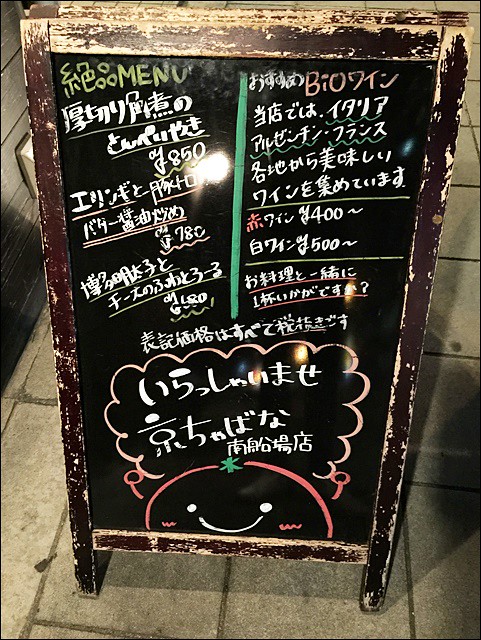 絶品MENU
厚切り角煮の
とんぺいやき
¥850
エリンギと豚トロの
バター醤油炒め
¥780
博多明太子と
チーズのふわとろーる
¥680
おすすめBiOワイン
当店では、イタリア
アルゼンチン・フランス
各地から美味しい
ワインを集めています。
赤ワイン ¥400〜
白ワイン ¥500〜
お料理と一緒に
1杯いかがですか?
表記価格はすべて税抜きです
いらっしゃいませ
京ちゃばな
南船場店